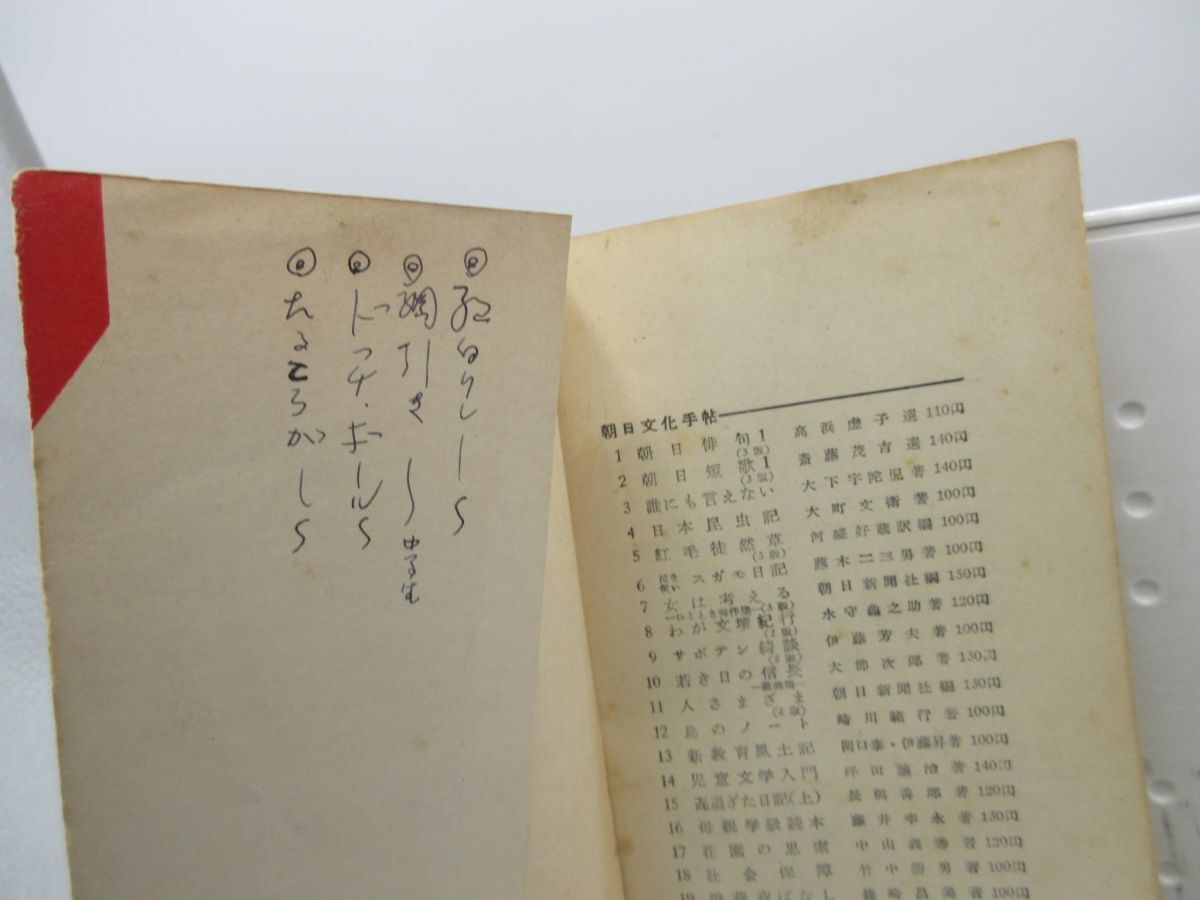 綱引き
ドッチボール
朝日文化手帖
1 朝日俳句1 (3版) 高浜虚子選 110円
2 朝日短歌1 (3版) 斎藤茂吉選 140円
3 誰にも言えない 大下宇陀児著 140円
4 日本昆虫記 大町文衛著 100円
5 紅毛徒然草 (3版) 河盛好蔵訳編 100円
6 スガモ日記 藤木二三男著 100円
7 女は考える 朝日新聞社編 150円
8 わが文壇紀行 (2版) 水守亀之助著 120円
9 サボテン綺談 (2版) 伊藤芳夫著 100円
10 若き日の信長 大佛次郎著 130円
11 人さまざま (2版) 朝日新聞社編 130円
12 島のノート 崎川範行著 100円
13 新教育風土記 関口泰・伊藤昇著 100円
14 児童文学入門 坪田譲治著 140円
15 遅過ぎた日記(上) 長與善郎著 120円
16 母親学級読本 藤井幸永著 130円
17 花園の思索 中山義秀著 120円
18 社会保障 竹中勝男著 100円
19 藤崎昌美著 100円